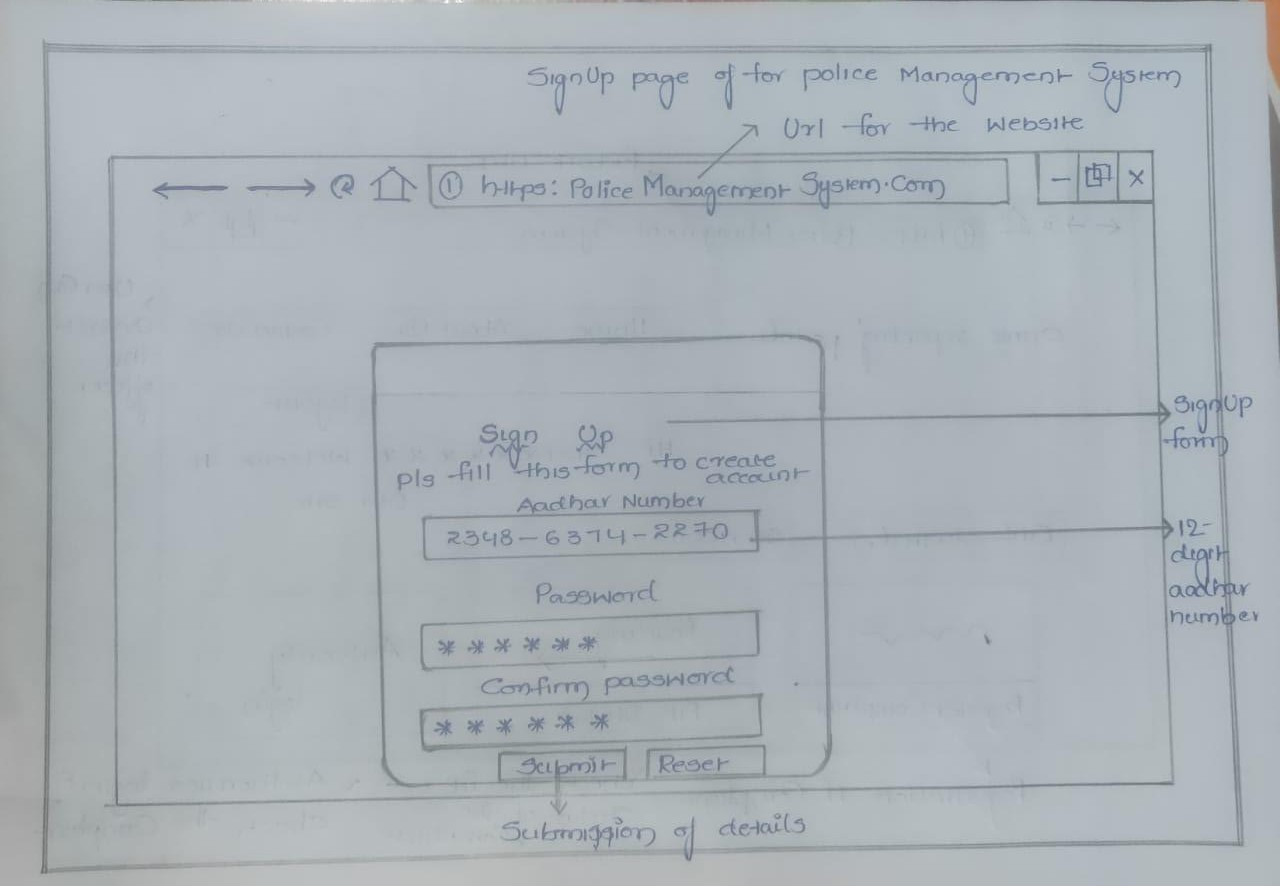 SignUp page of for police Management System
Url for the Website
① https: Police Management System.Com
Sign Up
Pls fill this form to create account
Aadhar Number
2348-6374-2270
Password
******
Confirm password
******
Submit Reset
SignUp
form
12-
degit
aadhar
number
Submission of details